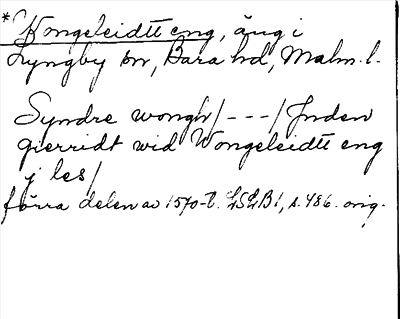 *Wongeleidtt eng, äng i
Lyngby sn, Bara hd, Malm. l.
Syndre wongh/---/Jnden
gierridt wid Wongeleidtt eng
j les/
förra delen av 1570-t. LSLB1, s. 486. orig.